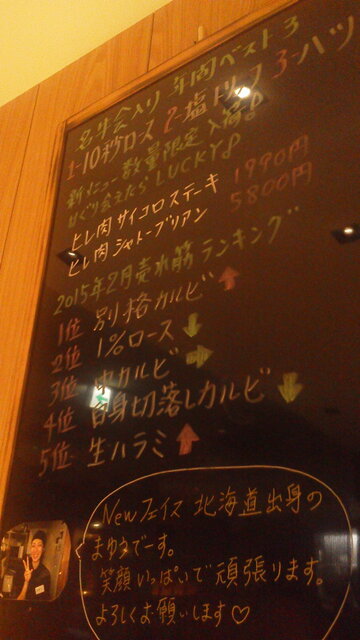 年間ベスト3
1-10秒ロース 2-塩トリップ 3-ハツ
新メニュー 数量限定 入荷♪
めぐり会えたら LUCKY♪
ヒレ肉 サイコロステーキ 1990円
ヒレ肉 シャトーブリアン 5800円
2015年2月売れ筋ランキング
1位 別格カルビ ↑
2位 1%ロース ↓
3位 中カルビ ➡
4位 自身切落しカルビ ↓
5位 生ハラミ ↑
Newフェイス 北海道出身の
まゆみでーす。
笑顔いっぱいで頑張ります。
よろしくお願いします♡